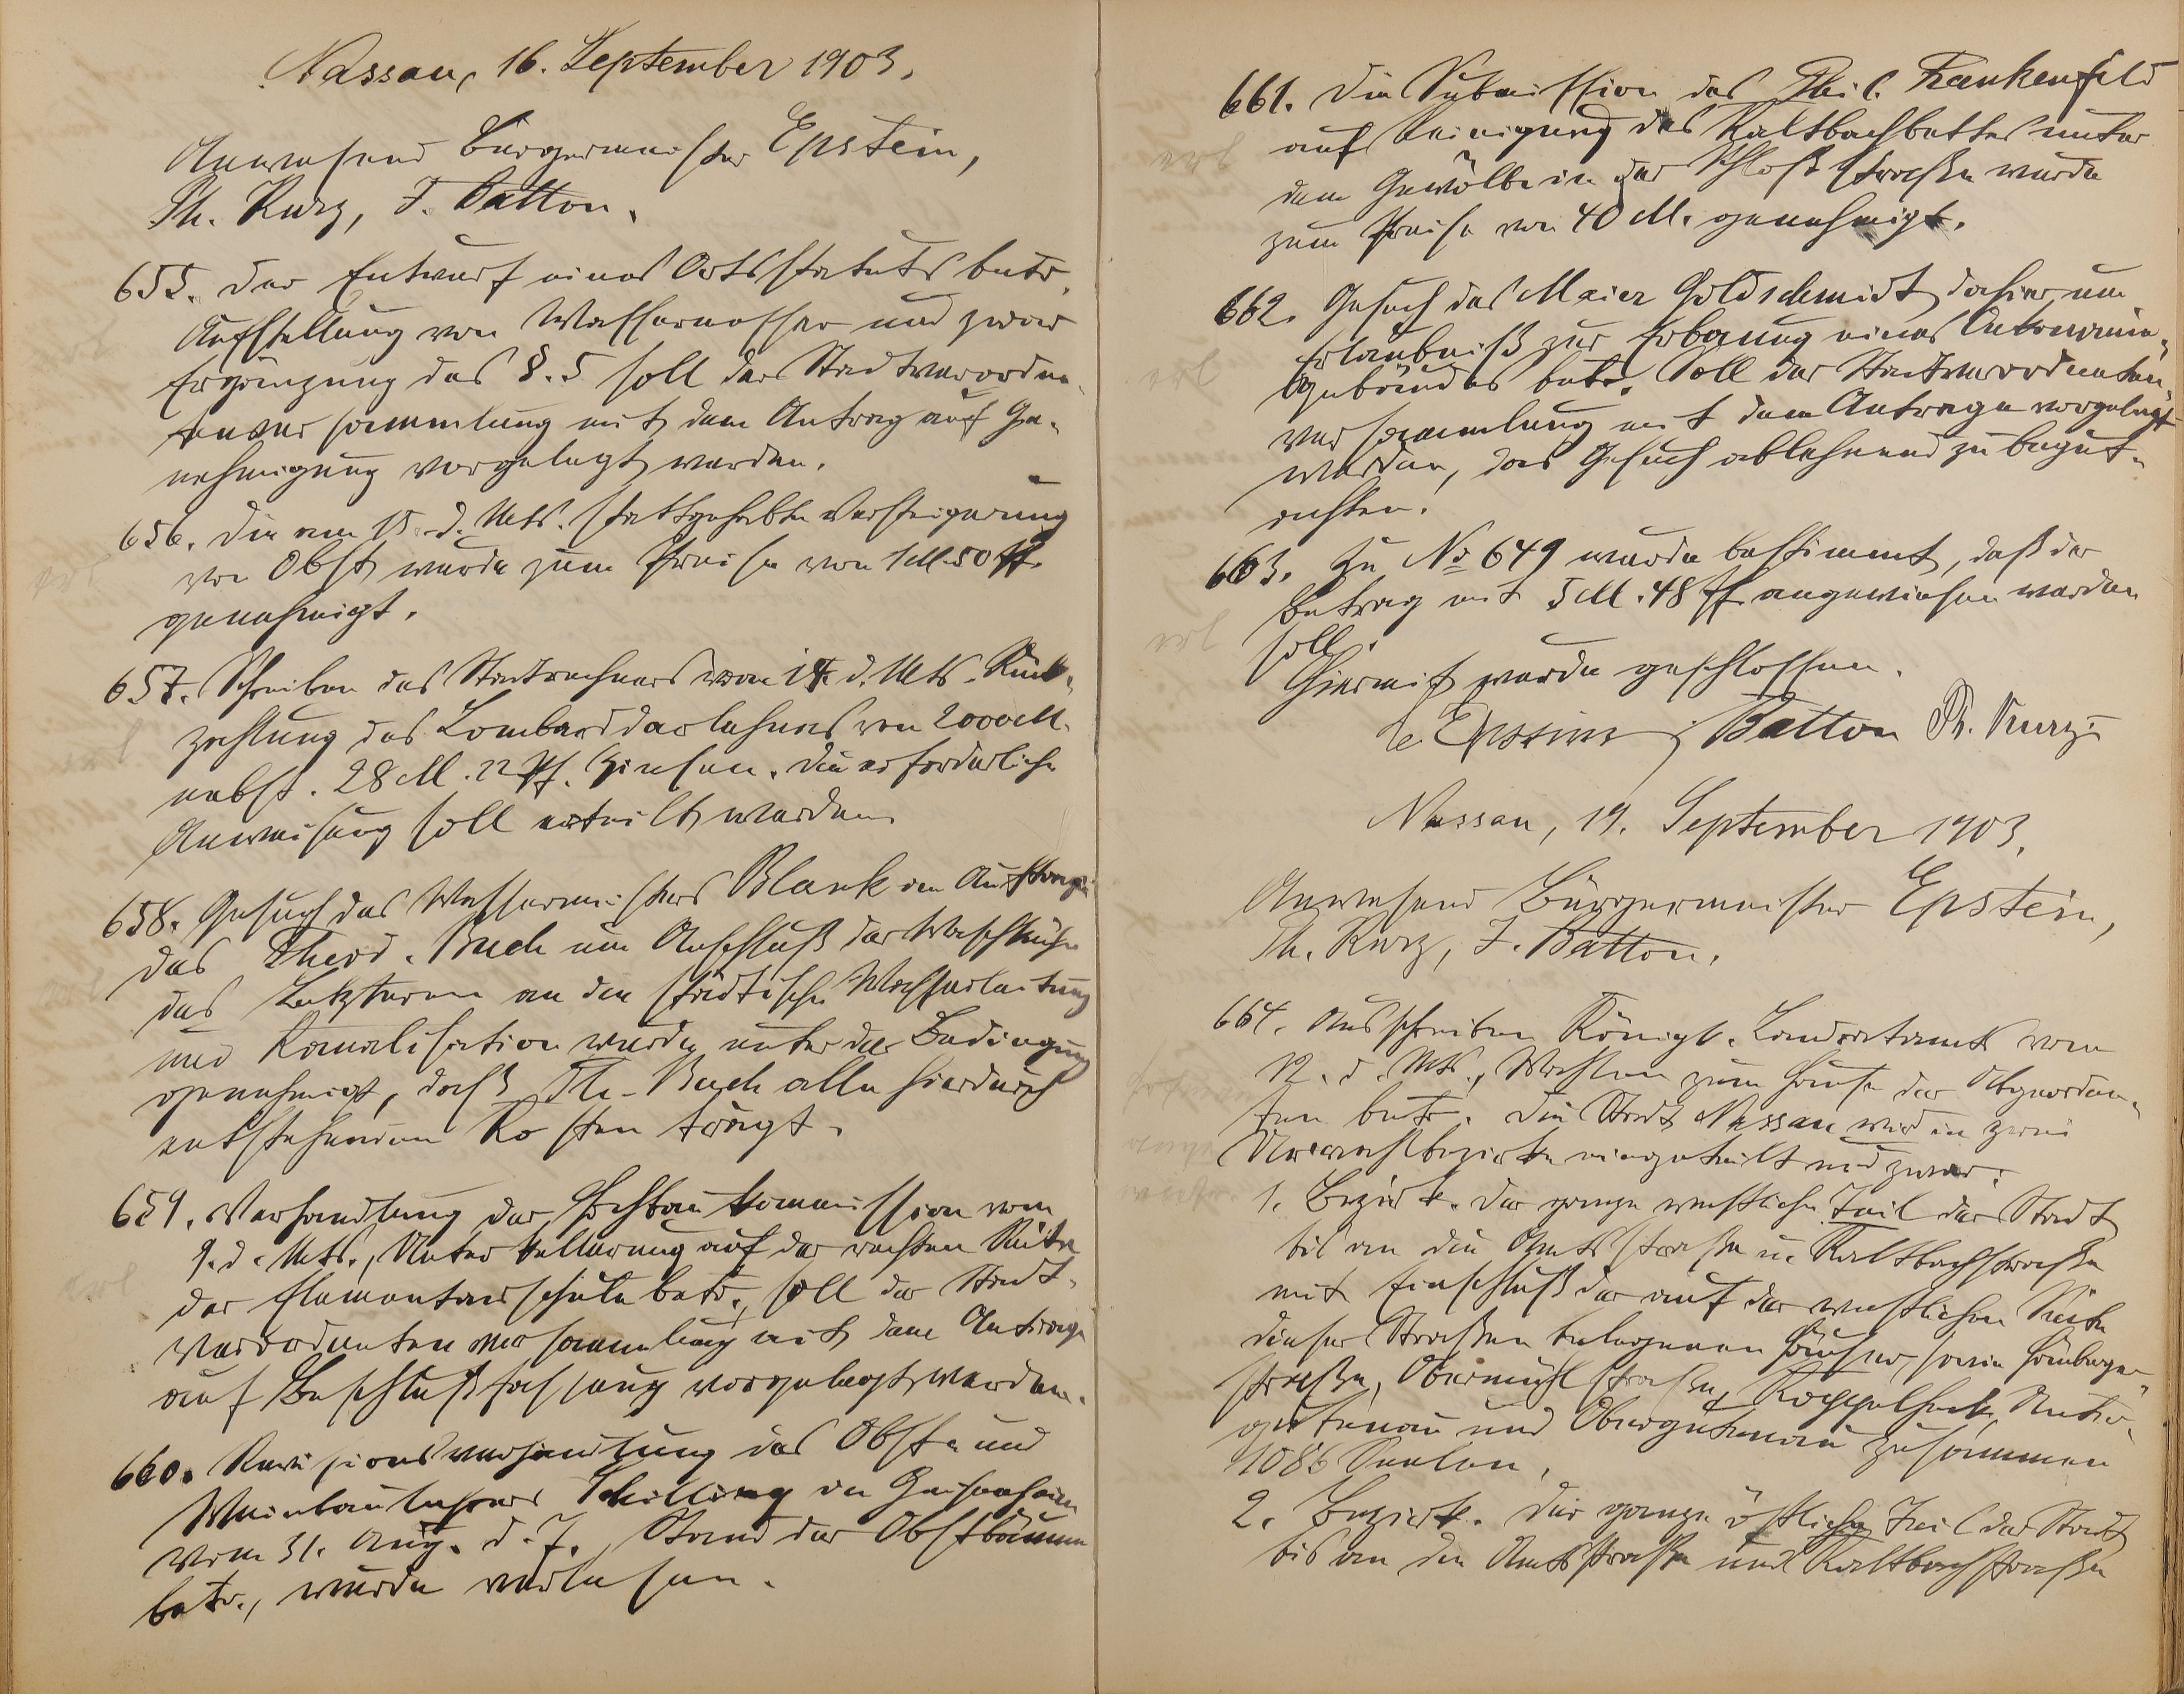 Nassau, 16. September 1903.
Anwesend Bürgermeister Epstein,
Th. Kurz, J. Batton.
655. Der Entwurf eines Ortsstatuts betr.
Aufstellung von Wassermesser und zwar
Ergänzung des §. 5 soll der Stadtverordne-
tenversammlung mit dem Antrag auf Ge-
nehmigung vorgelegt werden.
656. Die am 15. d. Mts. stattgehabte Versteigerung
von Obst wurde zum Preise von 1 M. 50 Pf.
genehmigt.
657. Schreiben des Stadtrechners vom 14. d. Mts. Rück-
zahlung des Lombarddarlehens von 2000 M.
nebst 28 M. 22 Pf. Zinsen. Die erforderliche
Anweisung soll erteilt werden.
658. Gesuch des Wassermeisters Blank im Auftrage
des Theod. Buch um Anschluß der Waschküche
des Letzteren an die städtische Wasserleitung
und Kanalisation wurde unter der Bedingung
genehmigt, daß Th. Buch alle hierdurch
entstehenden Kosten trägt.
659. Verhandlung der Hochbaukommission vom
9. d. Mts., Unterkellerung auf der rechten Seite
der Elementarschule betr., soll der Stadt-
verordnetenversammlung mit dem Antrage
auf Beschlußfassung vorgelegt werden.
660. Revisionsverhandlung des Obst- und
Weinbaulehrers Schilling in Geisenheim
vom 31. Aug. d. J., Stand der Obstbäume
betr., wurde verlesen.
661. Die Submission des Phil. Frankenfeld
auf Reinigung des Kaltbachbettes unter
dem Gewölbe in der Schloßstraße wurde
zum Preise von 40 M. genehmigt.
662. Gesuch des Maier Goldschmidt dahier um
Erlaubniß zur Erbauung eines
gebäudes betr. Soll der Stadtverordneten-
versammlung mit dem Antrage vorgelegt
werden, das Gesuch ablehnend zu begut-
achten.
663. Zu No 649 wurde bestimmt, daß der
Betrag mit 5 M. 48 Pf. angewiesen werden
soll.
Hiermit wurde geschlossen.
Epstein J Batton Th. Kurz
Nassau, 19. September 1903.
Anwesend Bürgermeister Epstein,
Th. Kurz, J. Batton.
664. Ausschreiben Königl. Landratsamts vom
12. d. Mts., Wahlen zum Hause der Abgeordne-
ten betr. Die Stadt Nassau wird in zwei
Urwahlbezirke eingeteilt und zwar:
1. Bezirk. Der ganze westliche Teil der Stadt
bis an die Amtsstraße u. Kaltbachstraße
mit Einschluß der auf der westlichen Seite
dieser Straßen belegenen Häuser, sowie Hömberger-
straße, Obermühlstraße, Koppelheck, Unter-
gutenau und Obergutenau zusammen
1086 Seelen.
2. Bezirk. Der ganze östliche Teil der Stadt
bis an die Amtsstraße und Kaltbachstraße